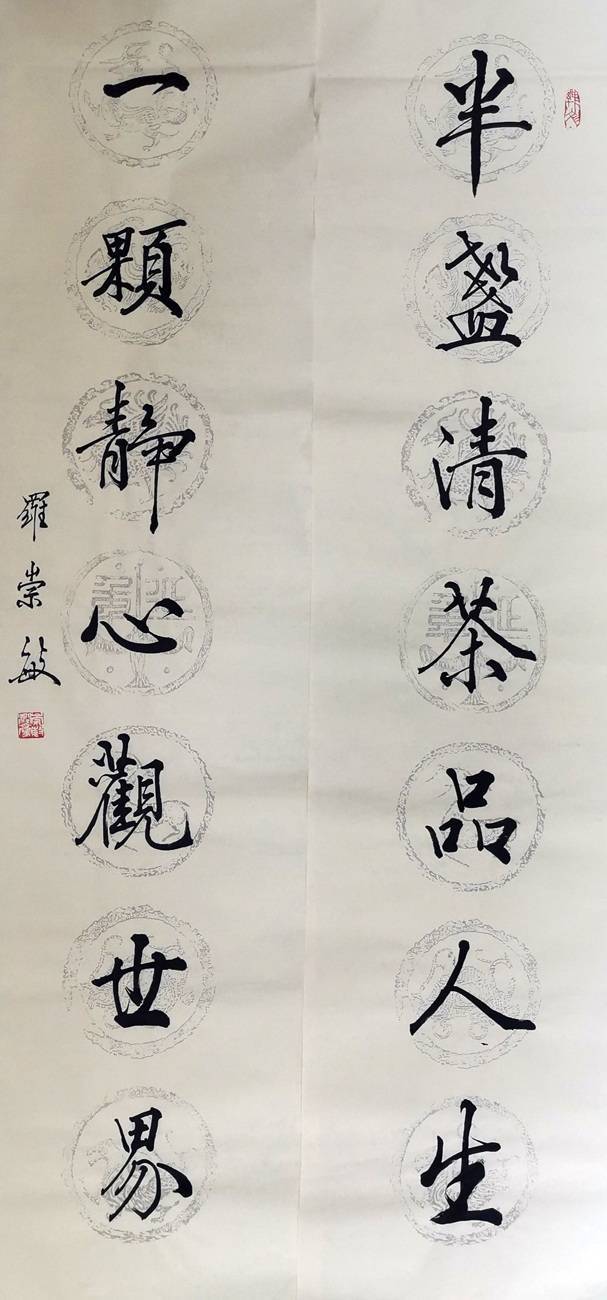 半盞清茶品人生
一顆靜心觀世界
羅崇敏